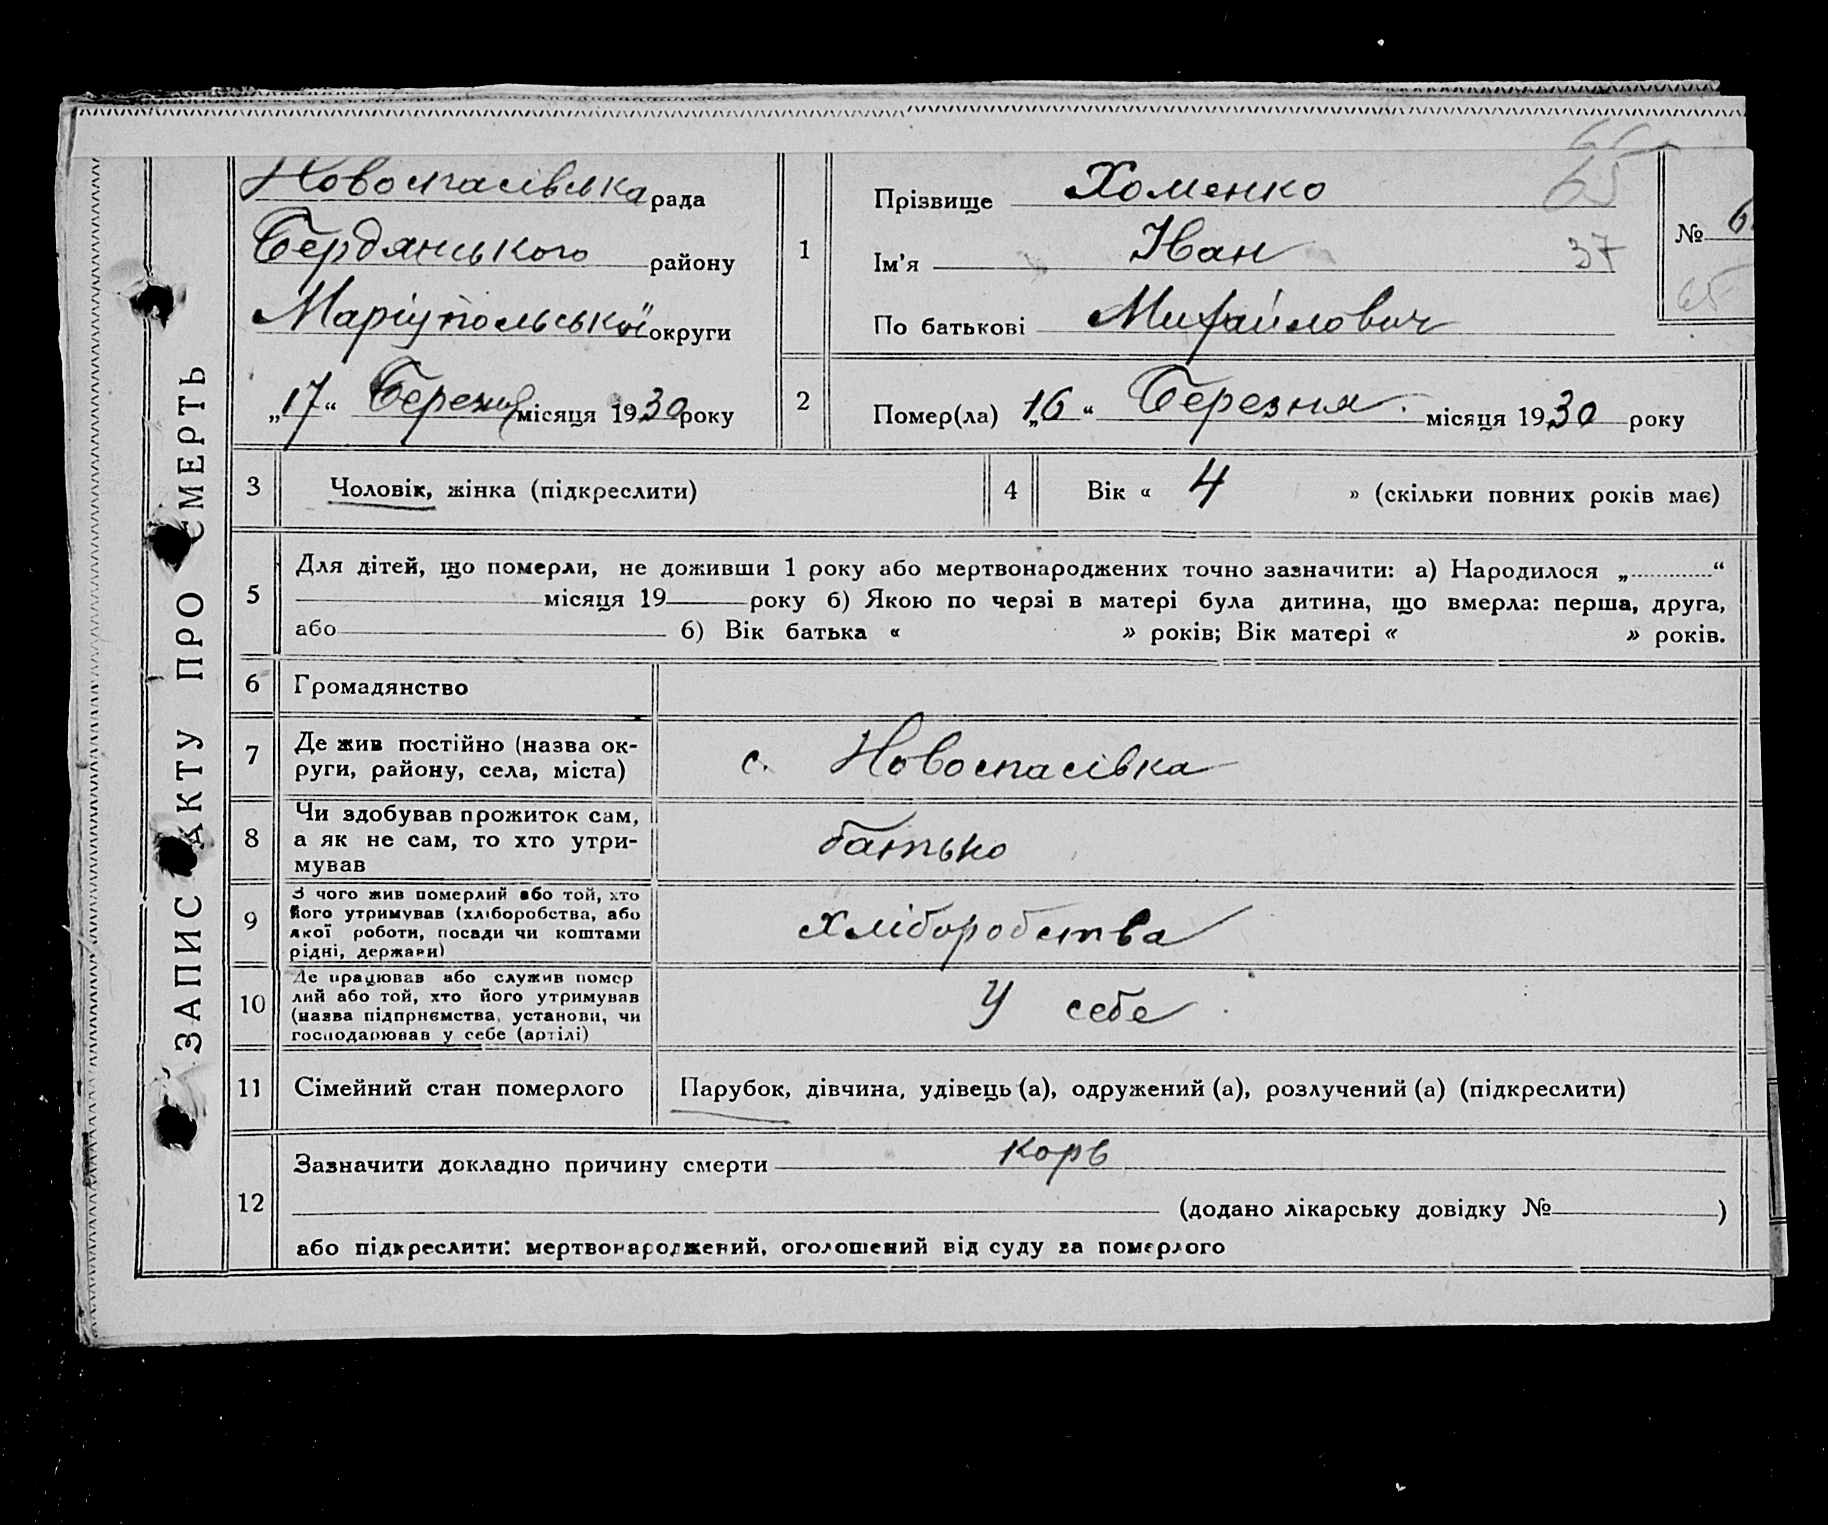 ЗАПИС АКТУ ПРО СМЕРТЬ
Новоспасівська рада
Бердянського району
Маріупольської округи
„17“ Березня місяця 1930 року
1
Прізвище Хоменко
65
Ім'я Іван
37
По батькові Михайлович
№ 6
65
2
Помер(ла) „16“ Березня місяця 1930 року
3
Чоловік, жінка (підкреслити)
4
Вік « 4 » (скільки повних років має)
5
Для дітей, що померли, не доживши 1 року або мертвонароджених точно зазначити: а) Народилося „ “
місяця 19 року б) Якою по черзі в матері була дитина, що вмерла: перша, друга,
або б) Вік батька « » років; Вік матері « » років.
6
Громадянство
7
Де жив постійно (назва ок-
руги, району, села, міста)
с. Новоспасівка
8
Чи здобував прожиток сам,
а як не сам, то хто утри-
мував
батько
9
З чого жив померлий або той, хто
його утримував (хліборобства, або
якої роботи, посади чи коштами
рідні, держави)
хліборобства
10
Де працював або служив помер
лий або той, хто його утримував
(назва підпрнємства, установи, чи
господарював у себе (артілі)
У себе
11
Сімейний стан померлого
Парубок, дівчина, удівець (а), одружений (а), розлучений (а) (підкреслити)
12
Зазначити докладно причину смерти корь
(додано лікарську довідку № )
або підкреслити: мертвонароджений, оголошений від суду за померлого